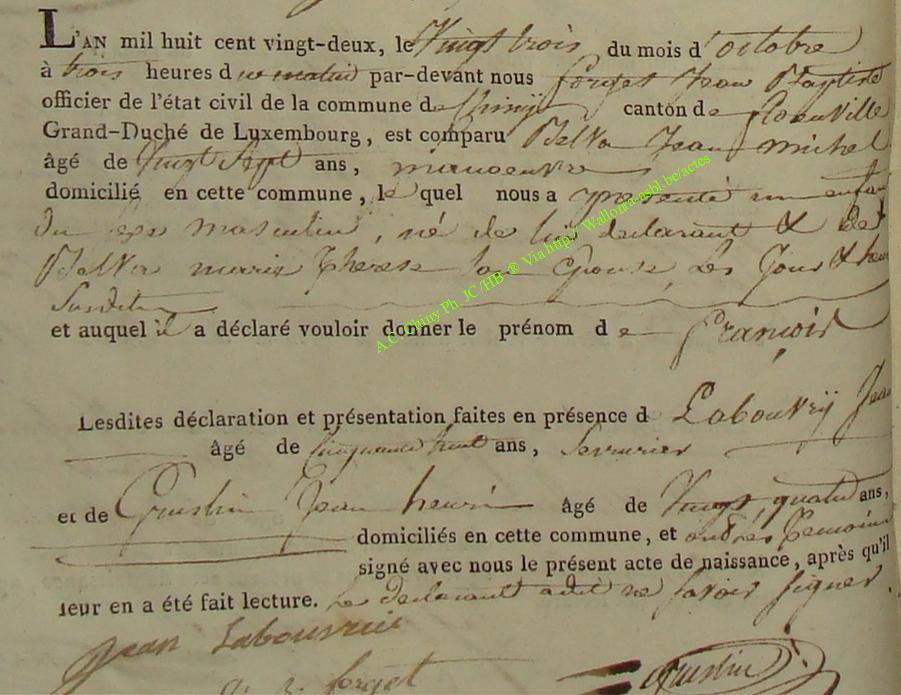 L'AN mil huit cent vingt-deux, le Vingt trois du mois d'octobre
à trois heures du matin par-devant nous forget Jean Baptiste
officier de l'état civil de la commune de Chiny canton de florenville
Grand-Duché de Luxembourg, est comparu Belva Jean michel
âgé de Vingt Sept ans, manoeuvre
domicilié en cette commune, le quel nous a presenté un enfant
du sexe masculin, né de lui declarant & de
Belva marie therese son Epouse, Les Jour & heure
Susdits
et auquel il a déclaré vouloir donner le prénom de françois
Lesdites déclaration et présentation faites en présence de Labouvrÿ Jean
âgé de cinquante huit ans, Serrurier
et de Guislin Jean henri âgé de Vingt quatre ans,
domiciliés en cette commune, et temoins
signé avec nous le présent acte de naissance, après qu'il
leur en a été fait lecture. Le declarant a dit ne savoir signer.
Jean Labouvrie
forget
Guislin
A.C. Chiny Ph JC/HB ® Via http://Walloinra-asbl.be/actes